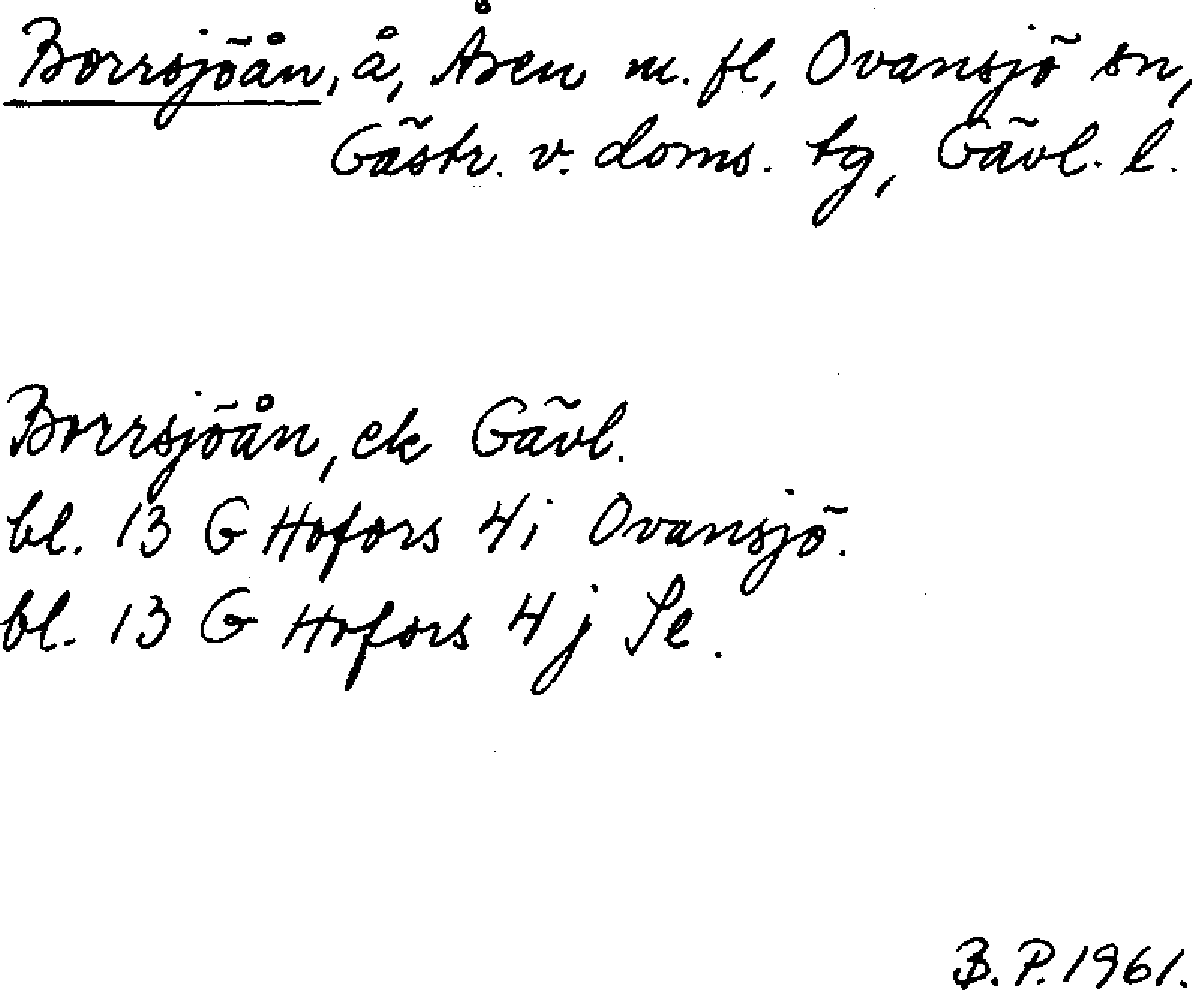 Borrsjöån, å, Åsen m. fl, Ovansjö sn,
Gästr. v. doms. tg, Gävl. l.
Borrsjöån, ek Gävl.
bl. 13 G Hofors 4i Ovansjö.
bl. 13 G Hofors 4j Se.
B.P. 1961.